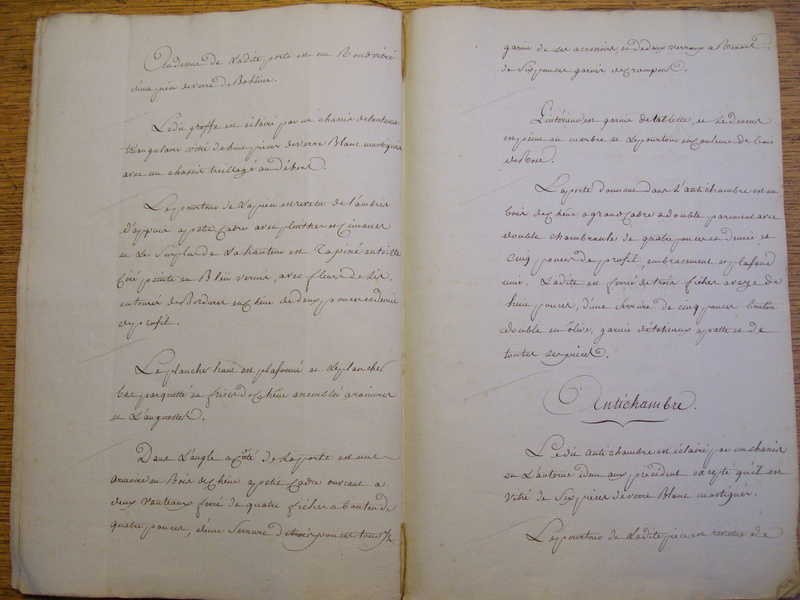 Audessus de Ladite porte est un Rond vitré
d'une pièce de verre de Bohême.
Ledit greffe est éclairé par un chassis de lanterne
triangulaire vitré de huit pièces de verre Blanc mastiquées
avec un chassis treillagé au déhors.
Le pourtour de La pièce est revetu de Lambris
d'appuy a petit Cadre avec plinthes et Cimaises
et Le Surplus de La hauteur est Tapissé en toille
Ciré peinte en Bleu vernie, avec fleurs de Lis
entourée de Bordures en Chêne de deux pouces et demie
de profil.
Le plancher haut est plafonné et Le plancher
bas parquetté en frises de Chêne assemblés a rainures
et Languettes.
Dans L'angle a Côté de La porte est une
armoire en Bois de Chêne a petit Cadre ouvrant a
deux vanteaux ferré de quatre fiches a bouton de
quatre pouces, d'une Serrure de trois pouces tour 1/2
garnie de ses accessoires, et de deux verroux a Ressort
de Six pouces garnis de Crampons.
L'intérieur est garnie de tablettes, et Le dessus
en peint en marbre et Le pourtour en Couleur de bois
de Rose.
La porte donnant dans L'antichambre est en
bois de Chêne a grand Cadre a double parement avec
double chambranle de quatre pouces et demie et
Cinq pouces de profil, embrasement et plafond
unie. Ladite est ferrée de trois fiches a vaze de
huit pouces, d'une Serrure de cinq pouces bouton
double en olive, garnie d'etoteaux a patte et de
toutes ses pièces.
Antichambre.
Ledit antichambre est éclairé par un chassis
en Lanterne idem aux précédent excepté qu'il est
vitré de Six pièces de verre Blanc mastiqués.
Le pourtour de Ladite pièce est revetue de